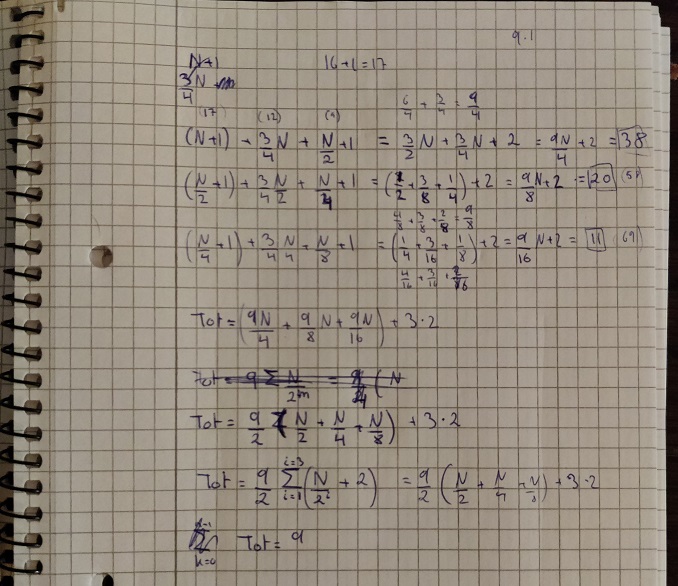 9.1
N+1 16+1=17
3/4 N
6/4 + 3/4 = 9/4
(17) (12) (9)
(N+1) + 3/4 N + N/2 + 1 = 3/2 N + 3/4 N + 2 = 9N/4 + 2 = 38
(N/2 + 1) + 3/4 N/2 + N/4 + 1 = (1/2 + 3/8 + 1/4) + 2 = 9/8 N + 2 = 20 (58)
4/8 + 3/8 + 2/8 = 9/8
(N/4 + 1) + 3/4 N/4 + N/8 + 1 = (1/4 + 3/16 + 1/8) + 2 = 9/16 N + 2 = 11 (69)
4/16 + 3/16 + 2/16
Tot = (9N/4 + 9/8 N + 9N/16) + 3·2
Tot = 9 Σ N/2^m = 9/4 ( N
Tot = 9/2 ( N/2 + N/4 + N/8 ) + 3·2
Tot = 9/2 Σ_{i=1}^{i=3} ( N/2^i + 2 ) = 9/2 ( N/2 + N/4 + N/8 ) + 3·2
Tot = 9